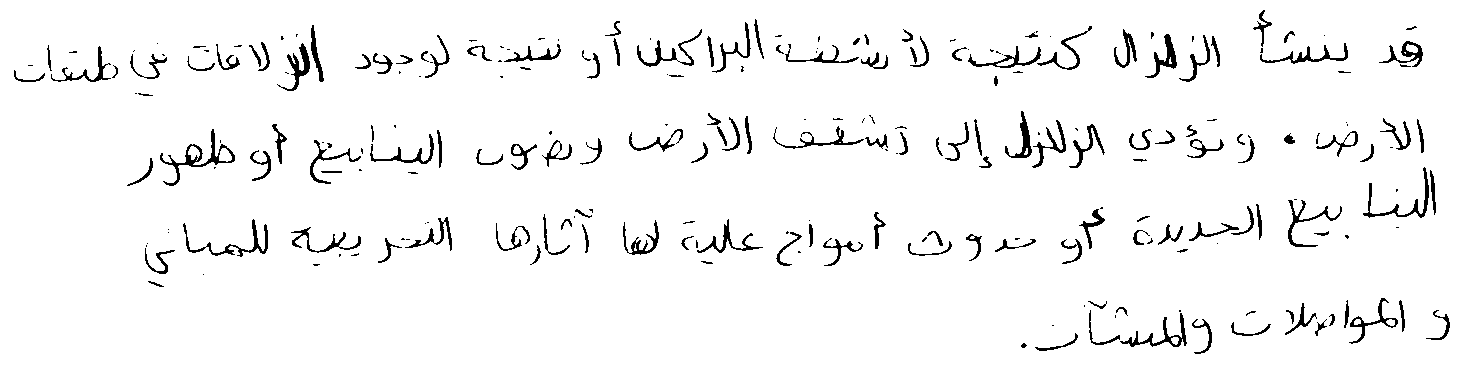 قد ينشأ الزلزال كنتيجة لأنشطة البراكين أو نتيجة لوجود انزلاقات في طبقات
الأرض. وتؤدي الزلازل إلى تشقق الأرض ونضوب الينابيع أو ظهور
الينابيع الجديدة أو حدوث أمواج عالية لها آثارها التخريبية للمباني
والمواصلات والمنشآت.